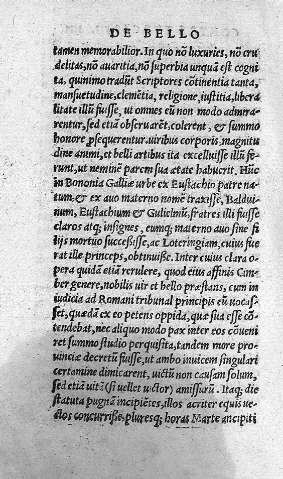 DE BELLO
tamen memorabilior. In quo nō luxuries, nō cru
delitas, nō auaritia, nō superbia unquā est cogni
ta, quinimo tradūt Scriptores cōtinentia tanta,
mansuetudine, clemētia, religione, iustitia, libera
litate illū fuisse, ut omnes eū non modo admira-
rentur, sed etiā obseruarēt, colerent, & summo
honore ꝓsequerentur. uiribus corporis, magnitu
dine animi, et belli artibus ita excelluisse illū fe-
runt, ut neminē parem sua ætate habuerit. Hiic
in Bononia Galliæ urbe ex Eustachio patre na-
tum, & ex auo materno nomē traxisse, Balduui-
num, Eustachum & Gulielmū, fratres illi fuisse
claros atq; insignes, eumq; materno auo sine fi
lijs mortuo successisse, ac Loteringiam, cuius fue
rat ille princeps, obtinuisse. Inter eius clara o-
pera quidā etiā rerulere, quod eius affinis Cim-
ber genere, nobilis uir et bello præstans, cum in
iudicia ad Romani tribunal principis eū uocas-
set, quædā ex eo petens oppida, quæ sua esse cō
tendebat, nec aliquo modo pax inter eos cōueni
ret summo studio perquisita, tandem more pro-
uinciæ decretū fuisse, ut ambo inuicem singulari
certamine dimicarent, uictū non causam solum,
sed etiā uitā (si uellet uictor) amissurū. Itaq; die
statuta pugnā incipiētes, illos acriter equis ue-
ctos concurrisse, pluresq; horas Marte ancipiti